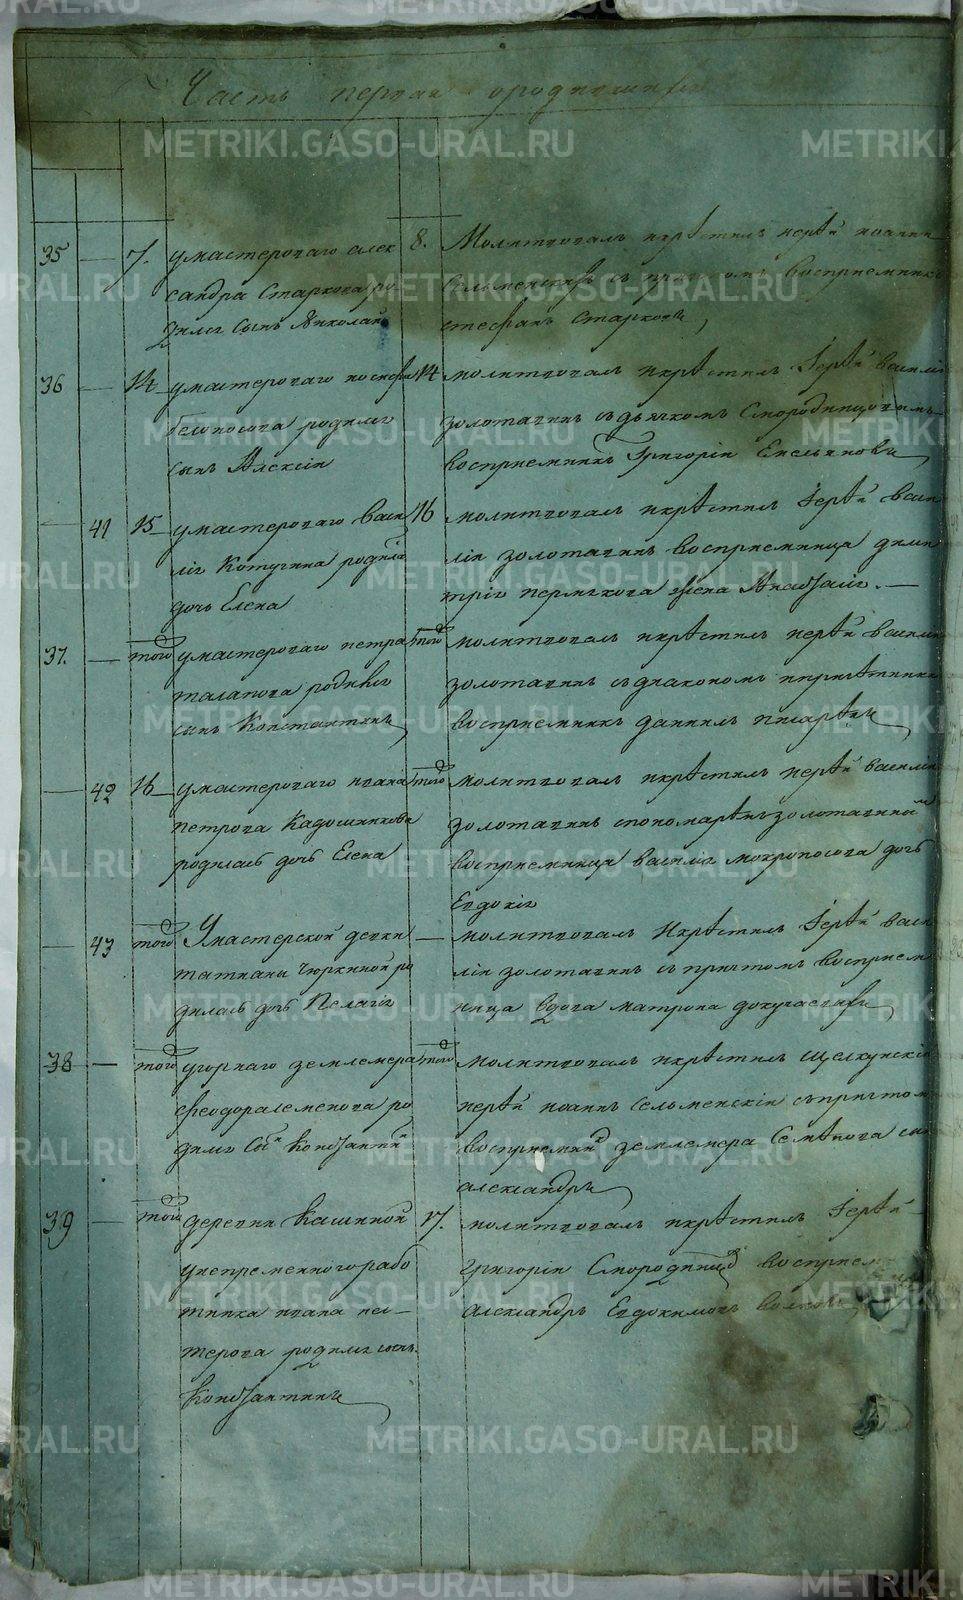 Часть первая о родившихся
35 — 7. у мастероваго алек
сандра Старкова ро
дился сынъ Николай
8. Молитвовалъ и крѣстилъ иерѣй иоаннъ
Сельменскiй съ причтомъ восприемникъ
стефанъ Старковъ
36 — 14 у мастероваго иосифа
белоносова родился
сынъ Алексiй
14 молитвовалъ и крѣстилъ Iерѣй василiй
золотавинъ съ дьячкомъ Смородинцовымъ
восприемникъ Григорiй Емельяновъ
— 41 15 у мастероваго васи
лiя Котугина родилась
дочь Елена
16 молитвовалъ и крѣстилъ Iерѣй васи
лiй золотавинъ восприемница дими
трiю пермякова жена Анастасiя. —
37. — того у мастероваго петра
талапова родился
сынъ Константинъ
того молитвовалъ и крѣстилъ иерѣй василiй
золотавинъ съ диакономъ
восприемникъ данiилъ писаревъ
— 42 16 у мастероваго ивана
петрова Кадошникова
родилась дочь Елена
того молитвовалъ и крѣстилъ иерѣй василiй
золотавинъ с пономарѣмъ золотавинымъ
восприемница василiя мокроносова дочь
Евдокiя
— 43 того У мастерской девки
татианы Чюркиной ро
дилась дочь Пелагiя
— молитвовалъ и крѣстилъ Iерѣй васи
лiй золотавинъ съ причтомъ восприем
ница вдова матрона докучаева
38 — того у горнаго землемера
феодора семенова ро
дился сынъ Константинъ
того молитвовалъ и крѣстилъ Щелкунскiй
иерѣй иоаннъ Сельменскiй съ причтомъ
восприемникъ землемера Семѣнова сынъ
александръ
39 — того деревни Кашиной
у непременного рабо
тника ивана нес—
терова родился сынъ
Константинъ
17. молитвовалъ и крѣстилъ Iерѣй
григорiй Смородинцовъ восприем
александръ Евдокимовъ волковъ